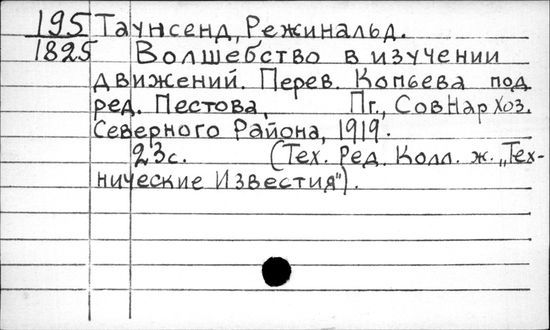 195 Таунсенд, Режинальд.
1825 Волшебство в изучении
движений. Перев. Копьева под
ред. Пестова, Пг., СовНарХоз.
Северного Района, 1919.
23с. (Тех. Ред. Колл. ж. „Тех-
нические Известия").